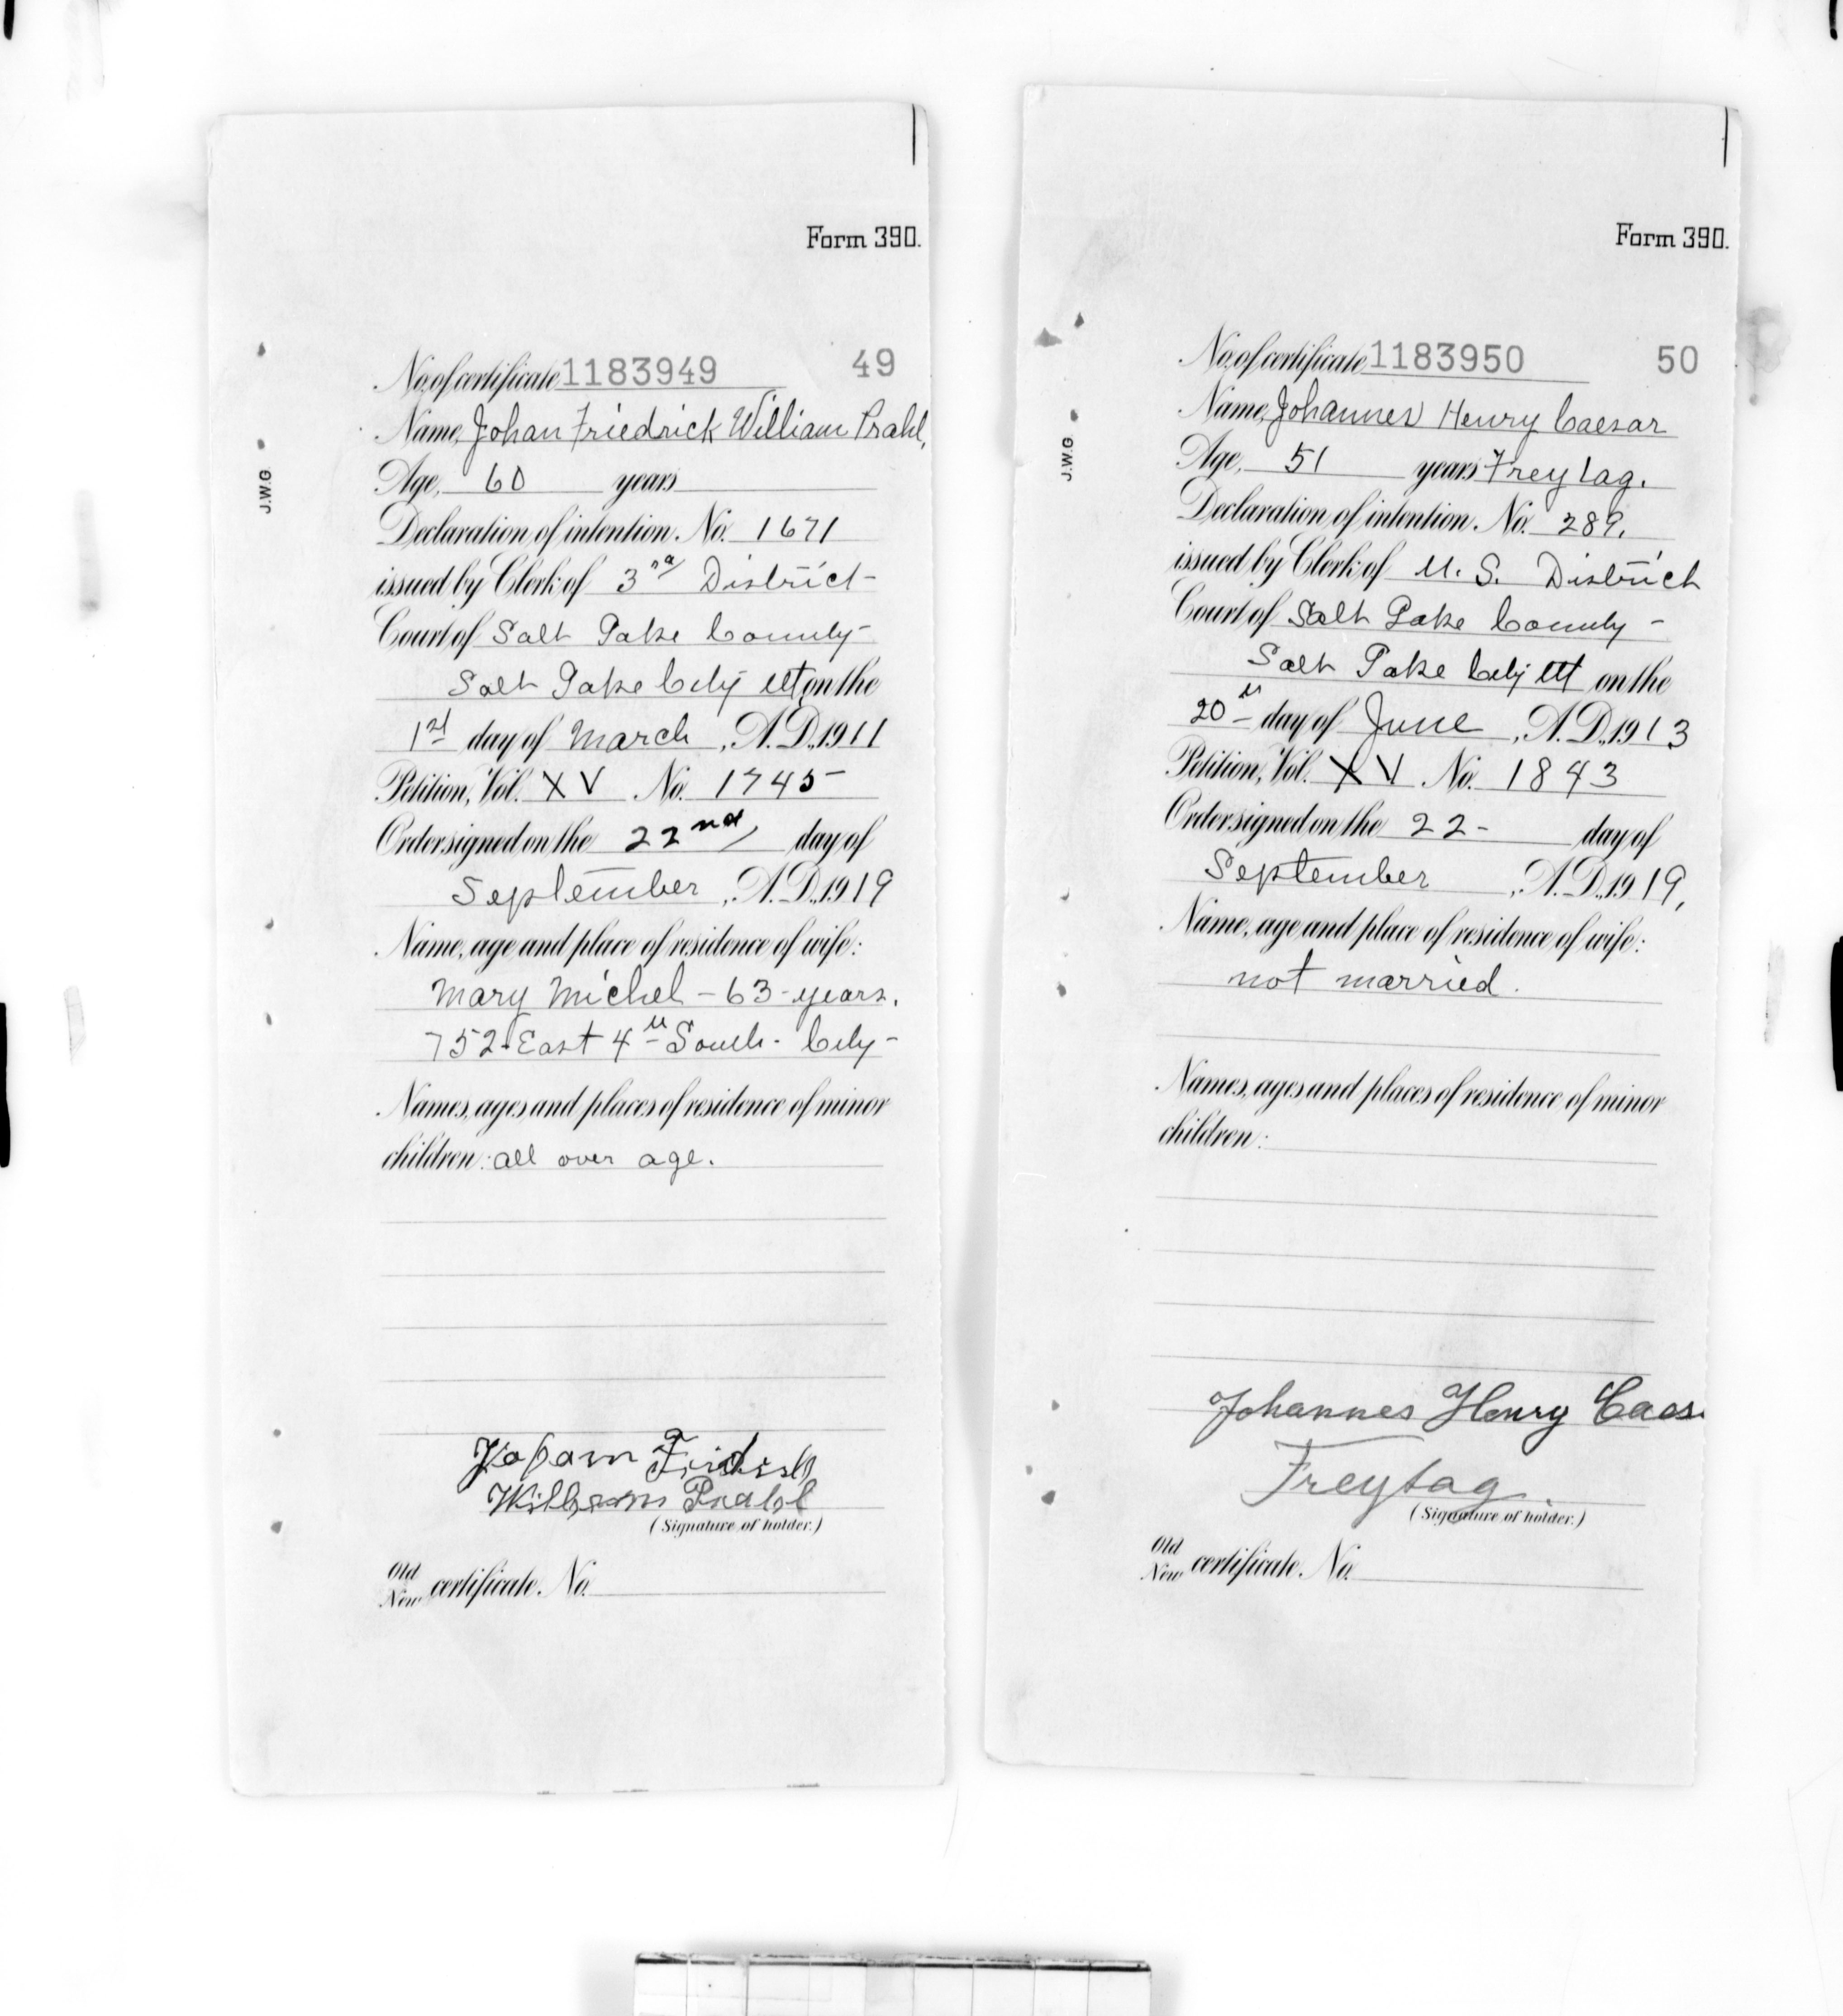 Form 390.
No. of certificate 1183949 49
Name, Johan Friedrick William Prahl,
Age, 60 years
Declaration of intention. No. 1671
issued by Clerk of 3rd District
Court of Salt Lake County
Salt Lake City Ut on the
1st day of March, A.D. 1911
Petition, Vol. XV No. 1745
Order signed on the 22nd, day of
September, A.D. 1919
Name, age and place of residence of wife:
Mary Michel - 63 - years.
752 East 4th South. City -
Names, ages and places of residence of minor
children: all over age.
Johann Fridrich
Wilhelm Prahl
(Signature of holder.)
Old
New certificate. No.
J.W.G
Form 390.
No. of certificate 1183950 50
Name, Johannes Henry Caesar
Age, 51 years Freytag.
Declaration of intention. No. 289.
issued by Clerk of U. S. District
Court of Salt Lake County -
Salt Lake City Ut on the
20th day of June, A.D. 1913
Petition, Vol. XV No. 1843
Order signed on the 22 - day of
September, A.D. 1919,
Name, age and place of residence of wife:
not married.
Names, ages and places of residence of minor
children:
Johannes Henry Caesa
Freytag.
(Signature of holder.)
Old
New certificate. No.
J.W.G